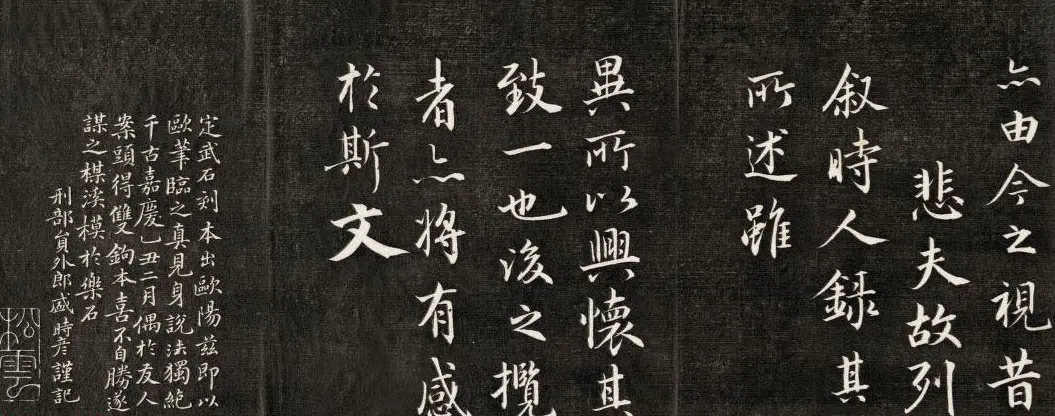 亦由今之視昔
悲夫故列
叙時人録其
所述雖
異所以興懷其
致一也後之攬
者亦將有感
於斯文
定武石刻本出歐陽兹即以
歐筆臨之真見身説法獨絶
千古嘉慶乙丑二月偶於友人
案頭得雙鉤本喜不自勝遂
謀之楳溪模於樂石
刑部員外郎盛時彦謹記
松雪